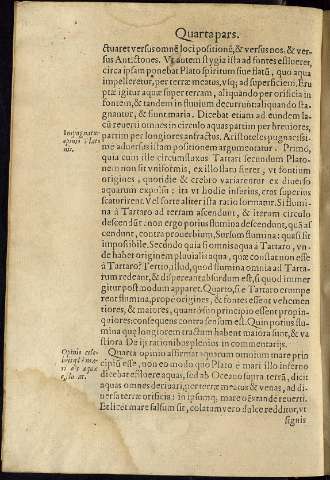 Quarta pars.
ctuaret versus omnē loci positionē, & versus nos, & ver-
sus Antictones. Vt autem stygia ista ad fontes efflueret,
circa ipsam ponebat Plato spiritum siue flatū, quo aqua
impelleretur, per terræ meatus, vsq; ad superficiem, Eru
ptæ igitur aquæ super terram, aliquando per orificia in
fontem, & tandem in fluuium decurrunt aliquando sta-
gnantur, & sunt maria. Dicebat etiam ad eundem la-
cū reuerti omnes in circulo aquas partim per breuiores,
partim per longiores anfractus. Aristoteles pugnacissi-
me aduersus istam positionem argumentatur. Primo,
quia cum ille circumfluxus Tartari secundum Plato-
nem non sit vniformis, ex illo stati fieret, vt fontium
origines, quotidie & crebro variarentur ex diuerso
aquarum expulsu: ita vt hodie inferius, cras superius
scaturirent. Vel forte aliter ista ratio formatur. Si flumi-
na à Tartaro ad terram ascendunt, & iterum circulo
descendūt: non ergo potius flumina descendunt, quā as
cendunt, contra prouerbium, Sursum flumina: quasi sit
impossibile. Secundo quia si omnis aqua à Tartaro, vn-
de habet originem pluuialis aqua, quæ constat non esse
à Tartaro? Tertio, illud, quod flumina omnia ad Tarta-
rum redeant, & dispereant absurdum est, si quod immer
gitur postmodum apparet. Quarto, si è Tartaro erumpe
rent flumina, prope origines, & fontes essent vehemen
tiores, & maiores, quanto suo principio essent propin-
quiores: consequens contra sensum est. Quin potius flu-
mina quæ longiorem tractum habent maiora sunt, & va
stiora. De ijs rationibus plenius in commentarijs.
Quarta opinio affirmat aquarum omnium mare prin
cipiū esse, non eo modo quo Plato è mari illo inferno
dicebat effluere aquas, sed ab Oceano supra terrā, dicit
aquas omnes deriuari, per terræ meatus & venas, ad di-
uersa terræ orificia: in ipsumq; mare oēs tandē reuerti.
Et licet mare salsum sit, colatum vero dulce redditur, vt
signis
Impugnatur
opinio Plato
nis.
Opinio